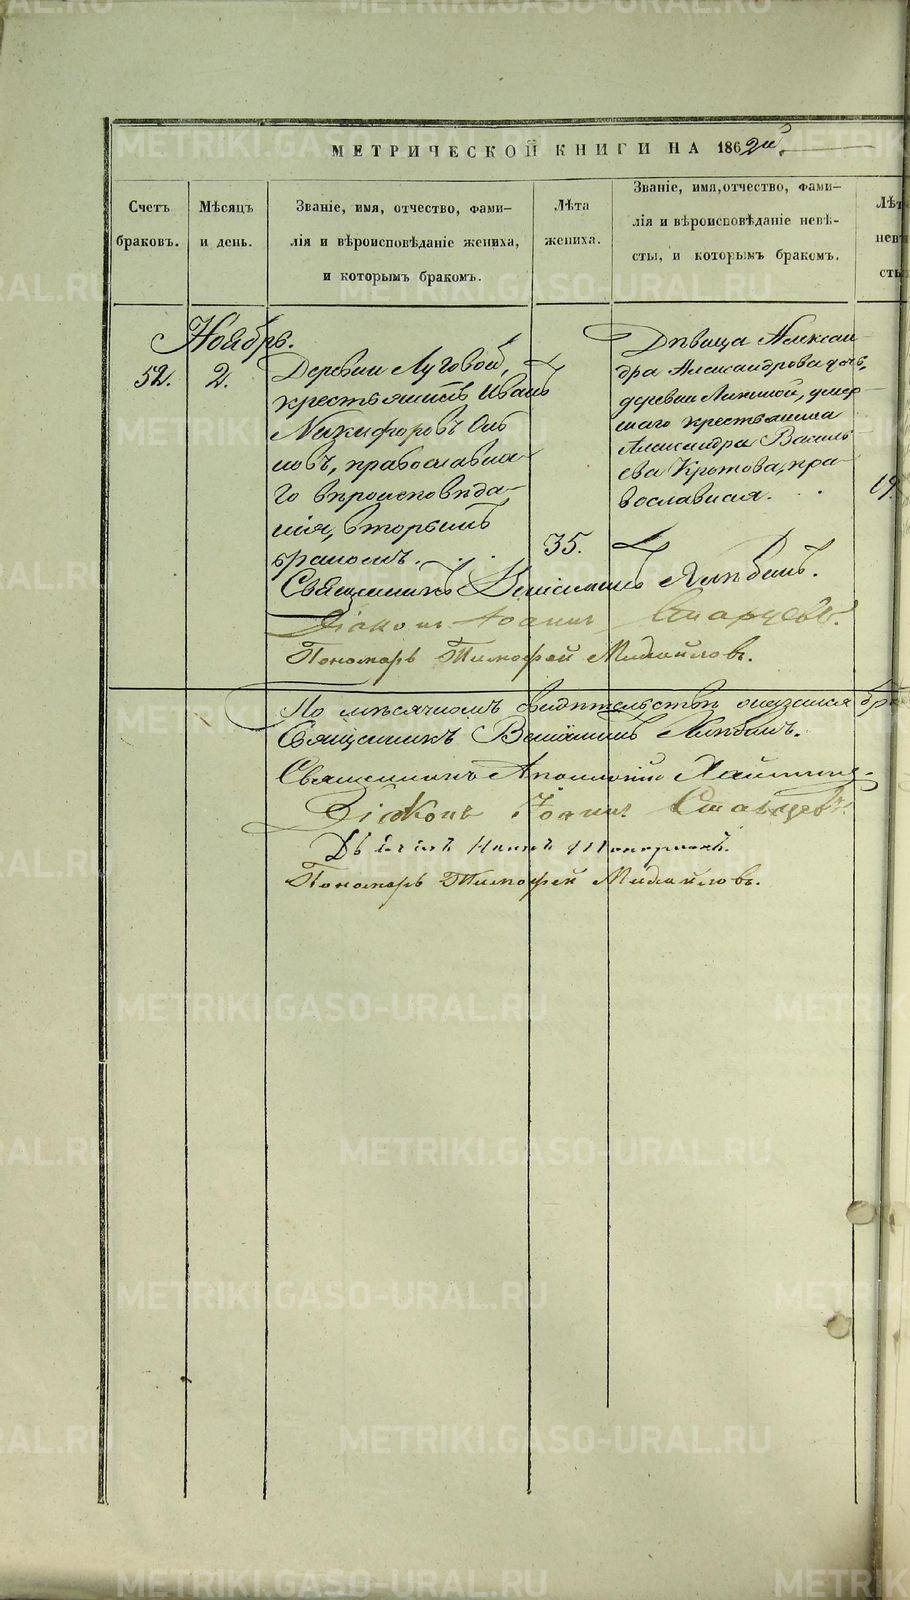 МЕТРИЧЕСКОЙ КНИГИ НА 1862й
Счетъ
браковъ.
Мѣсяцъ
и день.
Званіе, имя, отчество, фами-
лія и вѣроисповѣданіе жениха,
и которымъ бракомъ.
Лѣта
жениха.
Званіе, имя, отчество, фами-
лія и вѣроисповѣданіе невѣ-
сты, и которымъ бракомъ.
Лѣт
нев
сты
Ноябрь.
52.
2.
Деревни Луговой,
крестьянинъ Иванъ
Никифоровъ
православна-
го вѣроисповѣда-
нія, вторымъ
бракомъ.
35.
Дѣвица Алексан-
дра Александрова дочь,
деревни умер-
шаго крестьянина
Александра Василь-
ева Кротова, пра-
вославная.
19.
Священникъ Веніаминъ Хлѣбинъ.
Діаконъ Іоаннъ Старцевъ.
Пономарь Тимофей Михайловъ.
По мѣсячномъ свидѣтельствѣ
Священникъ Веніаминъ Хлѣбинъ.
Священникъ Аполлоній
Діаконъ Іоаннъ Старцевъ.
Пономарь Тимофей Михайловъ.
METRIKI.GASO-URAL.RU